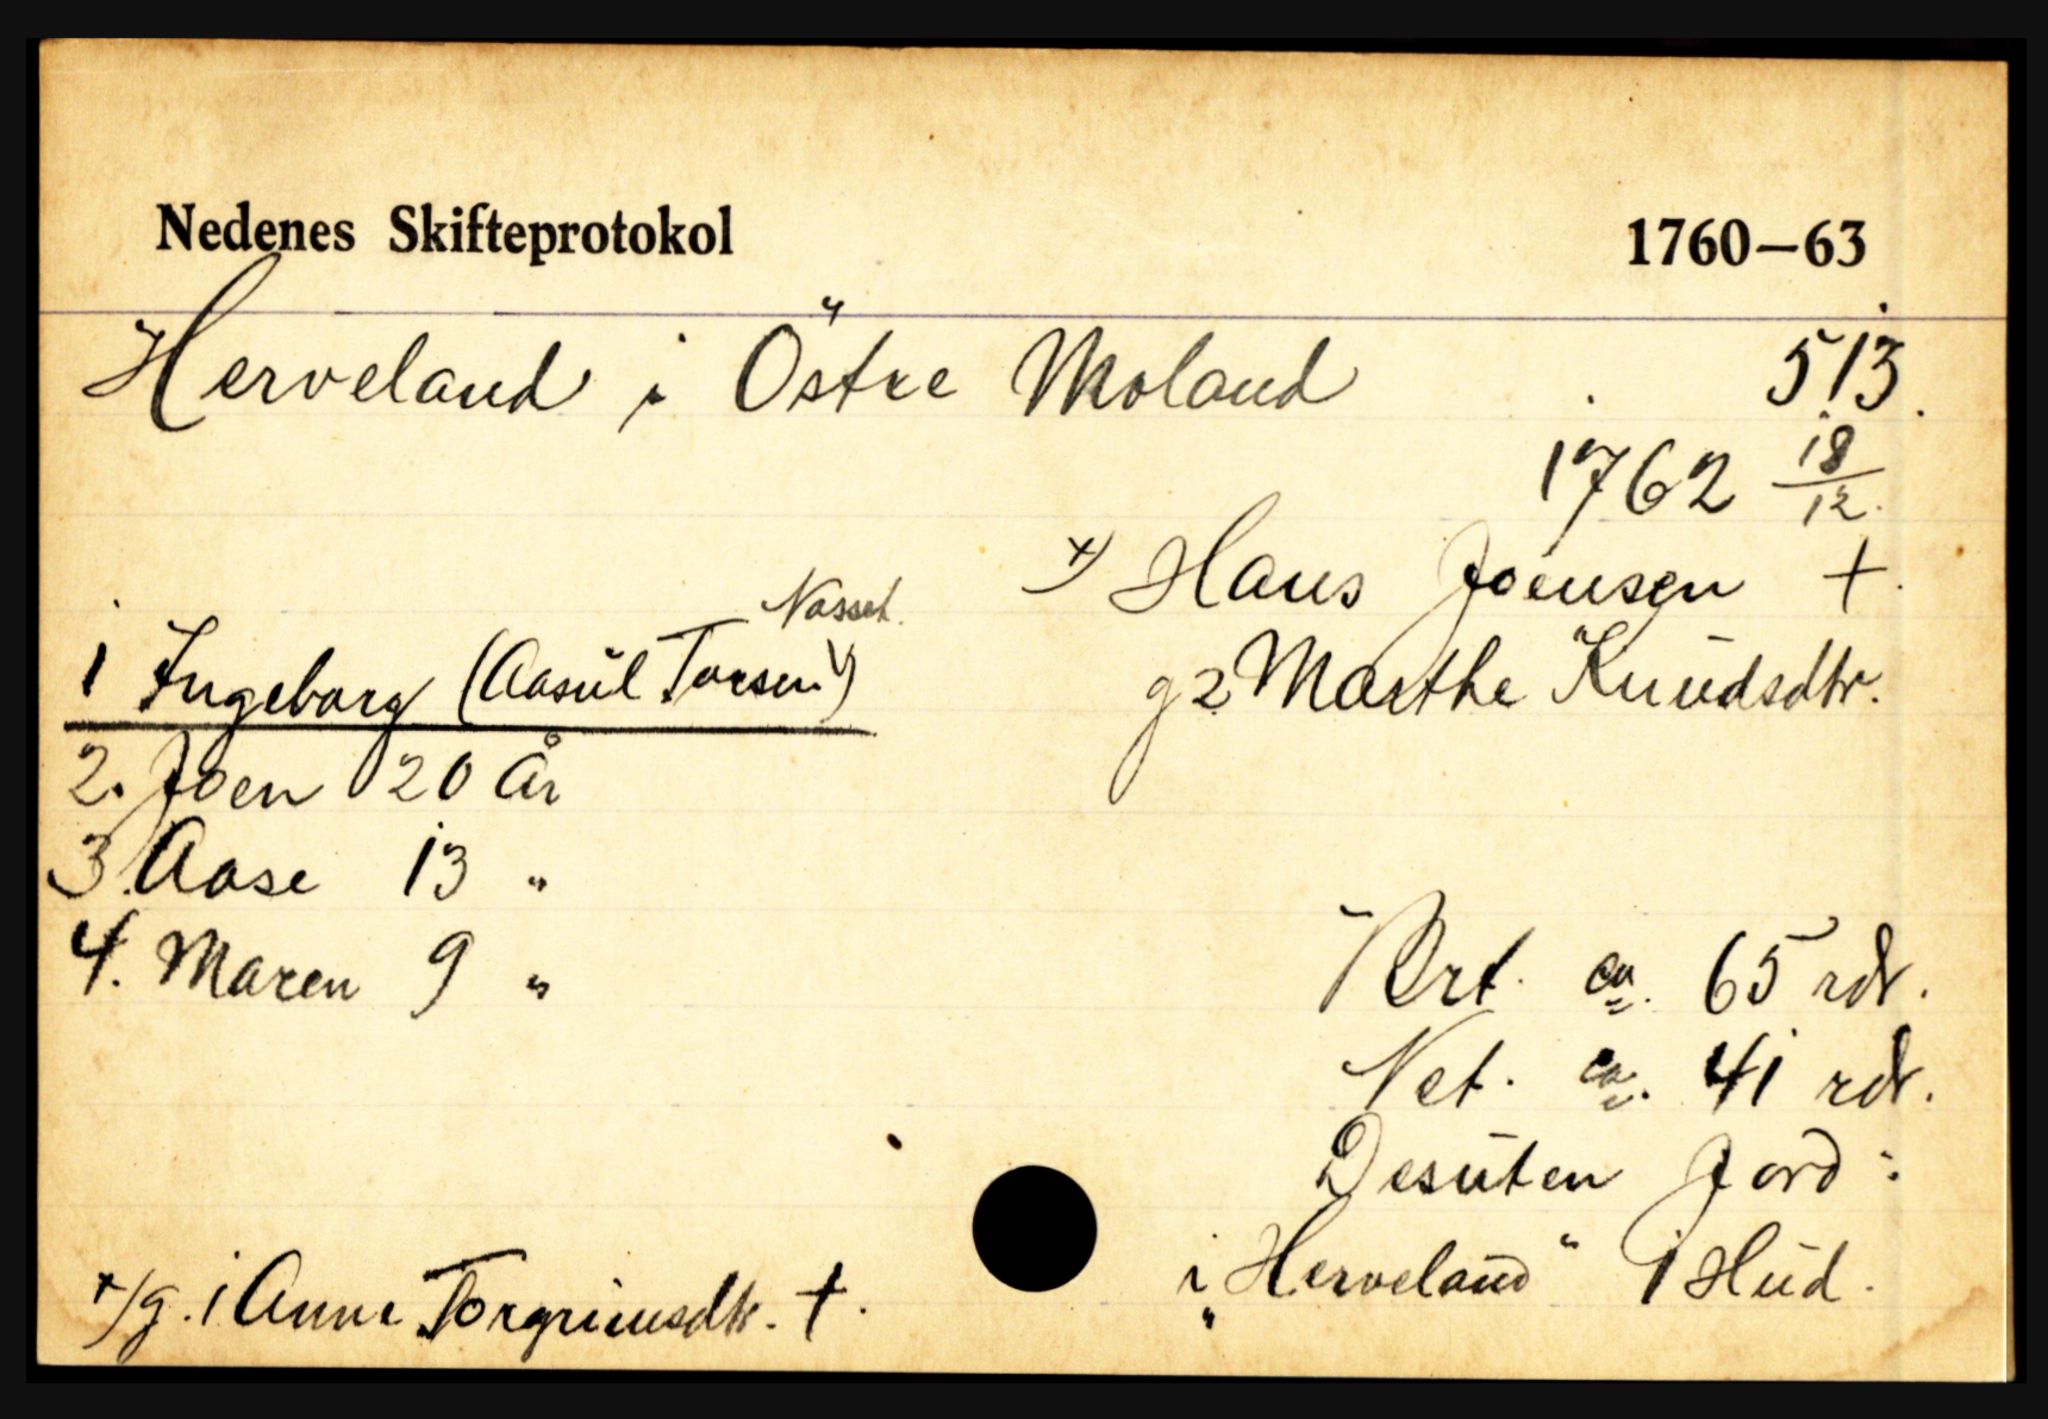 Nedenes Skifteprotokol 1760—63
Herveland i Östre Moland 513.
1762 18/12.
x) Hans Joensen +.
g 2 Marthe Knudsdtr.
Nasset.
1 Ingeborg (Aasul Torsen)
2. Joen 20 År
3. Aase 13 "
4. Maren 9 "
Brt. ca. 65 rdr.
Net. ca. 41 rdr.
Desuten Jord:
i „Herveland" 1 Hud.
x/ g. 1 Anne Torgrimsdtr. +.